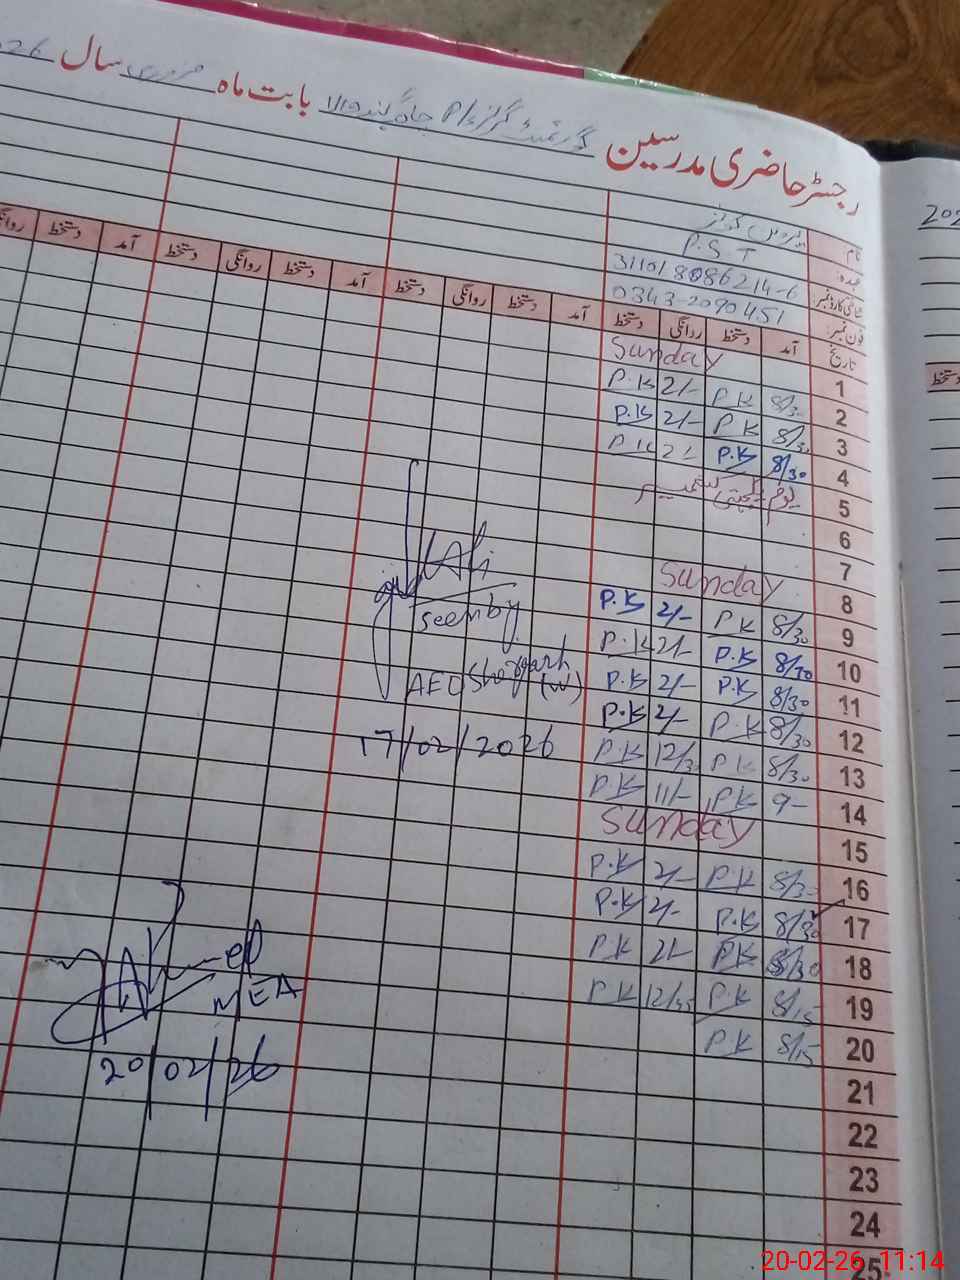 رجسٹر حاضری مدرسین گورنمنٹ گرلز P/S چاہ بابت ماہ فروری سال 2026
نام پروین کوثر
عہدہ P.S.T
شناختی کارڈ نمبر 31101 8086214-6
فون نمبر 0343-2090451
تاریخ آمد دستخط روانگی دستخط آمد دستخط روانگی دستخط آمد دستخط روانگی دستخط آمد دستخط روانگی
1 Sunday
2 8/30 P.K 2/- P.K
3 8/30 P.K 2/- P.K
4 8/30 P.K 2/- P.K
5 یوم یکجہتی کشمیر
6
7
8 Sunday
9 8/30 P.K 2/- P.K
10 8/30 P.K 2/- P.K
11 8/30 P.K 2/- P.K
12 8/30 P.K 2/- P.K
13 8/30 P.K 12/30 P.K
14 9- P.K 11/- P.K
15 Sunday
16 8/30 P.K 2/- P.K
17 8/30 P.K 2/- P.K
18 8/30 P.K 2/- P.K
19 8/15 P.K 12/45 P.K
20 8/15 P.K
21
22
23
24
25
Ali
Seen by
AEO Shergarh
(W)
17/02/2026
MEA
20/02/26
202
دستخط
20-02-26 11:14